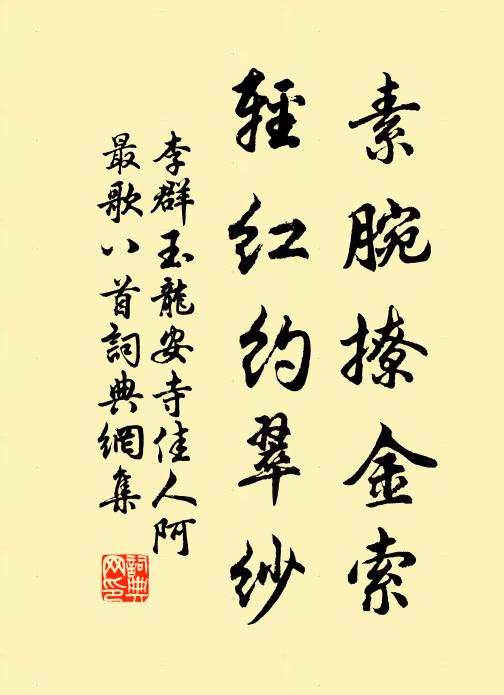 素腕撩金索
輕紅約翠紗
李群玉龍安寺佳人阿
最歌八首詞典網集
詞典
网印